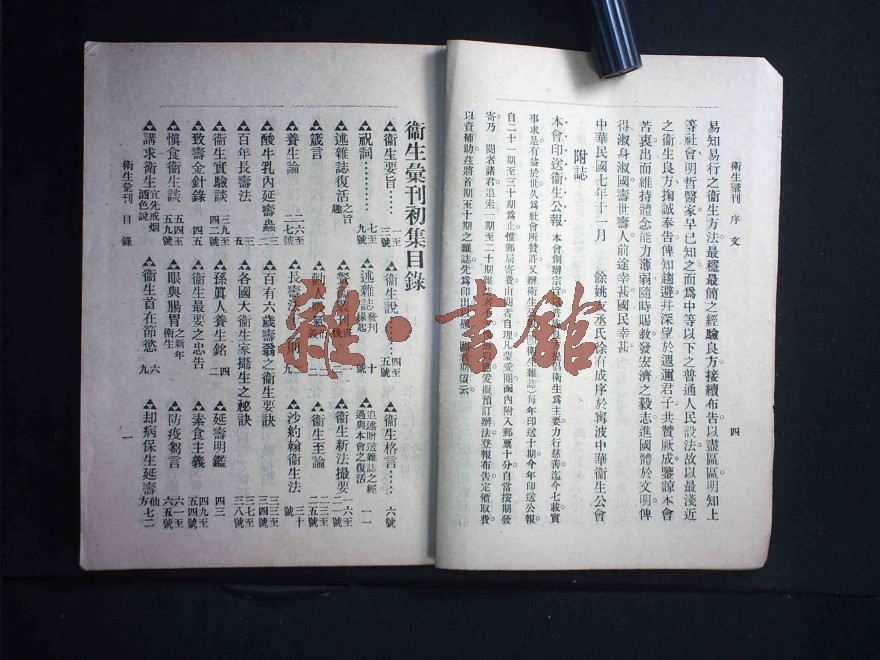 衞生彙刊 序文
四
易知易行之衞生方法最穩最簡之經驗良方接續布告以盡區區明知上
等社會明哲醫家早已知之而爲中等以下之普通人民設法故以最淺近
之衞生良方掬誠奉告俾知趨避並深望於遐邇君子共贊厥成鑒諒本會
苦衷出而維持體念能力薄弱隨時賜教發宏濟之毅志進國體於文明俾
得淑身淑國壽世壽人前途幸甚國民幸甚
中華民國七年十二月 餘姚友丞氏徐有成序於寗波中華衞生公會
附誌
本會印送衞生公報
事求是有益於世久爲社會所贊許又辦衞生
自二十一期至三十期爲止惟郵局寄費由閱者自理凡蒙愛閱函內附入郵票十分自當按期發
寄乃 閱者諸君追索一期至二十期雜誌
以資補助茲將首期至十期之雜誌先爲印出
衞生彙刊初集目錄
衞生要旨 一至三號
衞生說 四至五號
衞生格言 六號
祝詞 七至九號
述雜誌發刊緣起 十號
追述附送雜誌之經過與本會之復活 一一
述雜誌復活之旨趣
衞生新法撮要
箴言
衞生至論
養生論 二六至二七號
長壽法
沙約翰衞生法 三十號
酸牛乳內延壽蟲 三二
百有六歲壽翁之衞生要訣 三三至三四號
百年長壽法 三五
各國大衞生家攝生之秘訣 三七至三八號
衞生實驗談 三九至四二號
孫眞人養生銘 四二
延壽明鑑 四三
致壽金針錄 四五
衞生最要之忠告
素食主義 四九至五四號
慎食衞生談 五四至五九號
眼與腸胃之新年衞生 六
防疫芻言 六一至六五號
講求衞生宜先戒烟酒色說
衞生首在節慾 六九
却病保生延壽仙方 七二
衞生彙刊 目錄
一
雜·書館